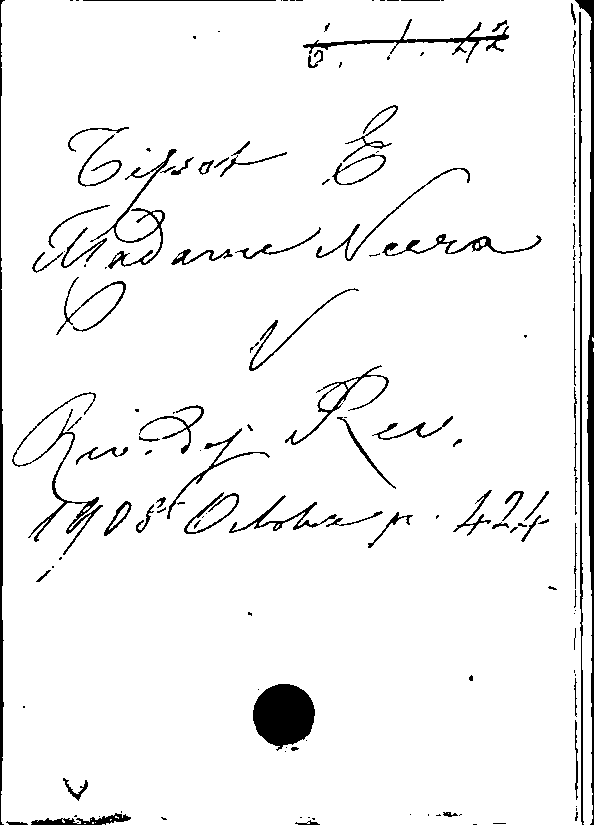 6. 1. 42
Tissot E
Madame Neera
V
Rev.
1908 Octobre p. 424